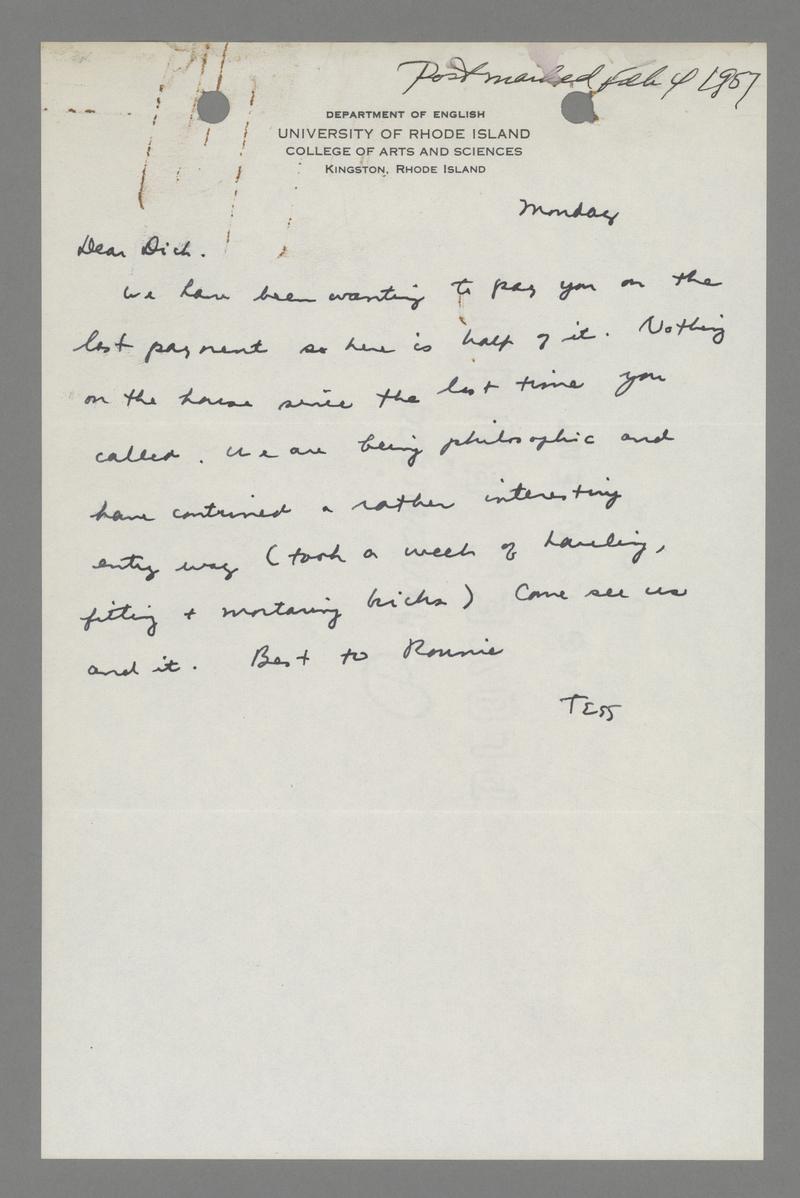 Postmarked Feb 4 1957
DEPARTMENT OF ENGLISH
UNIVERSITY OF RHODE ISLAND
COLLEGE OF ARTS AND SCIENCES
KINGSTON, RHODE ISLAND
Monday
Dear Dick.
We have been wanting to pay you on the
last payment so here is half of it. Nothing
on the house since the last time you
called. We are being philosophic and
have contrived a rather interesting
entry way (took a week of hauling,
fitting + mortaring bricks) Come see us
and it. Best to Ronnie
TESS